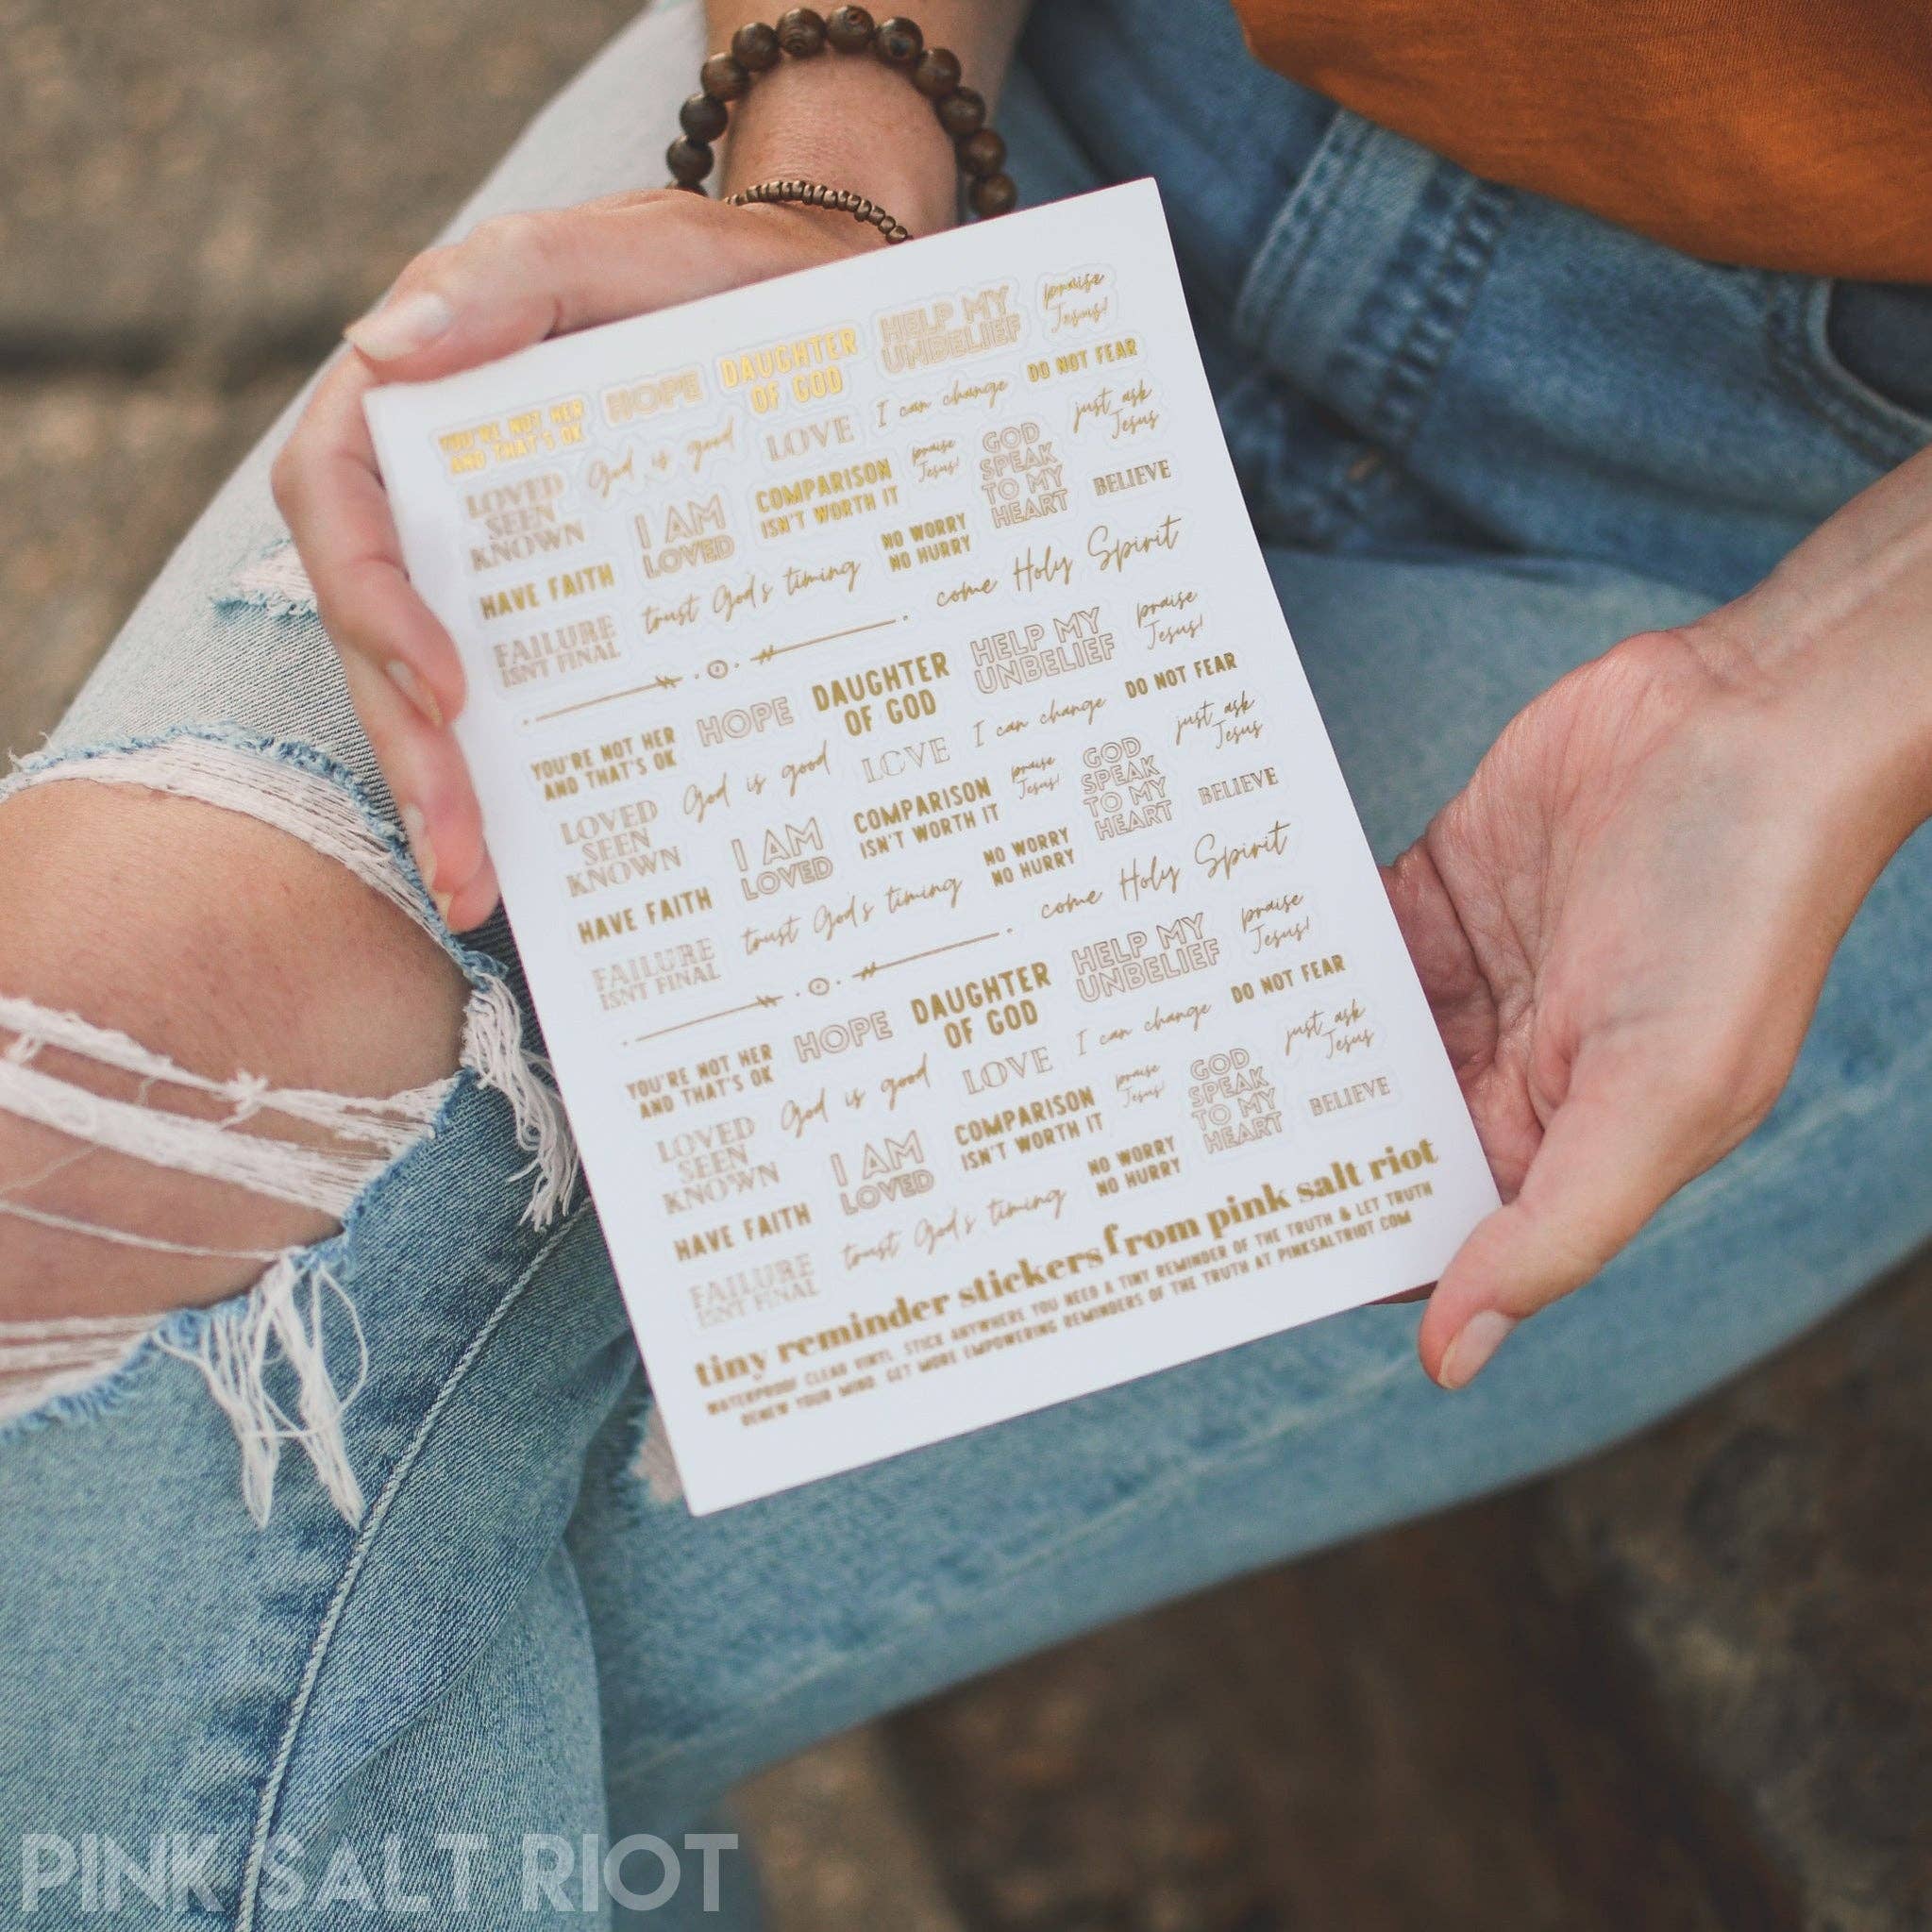 YOU'RE NOT HER
AND THAT'S OK
HOPE
DAUGHTER
OF GOD
HELP MY
UNBELIEF
praise
Jesus!
LOVED
SEEN
KNOWN
God is good
LOVE
I can change
DO NOT FEAR
I AM
LOVED
COMPARISON
ISN'T WORTH IT
praise
Jesus!
GOD
SPEAK
TO MY
HEART
just ask
Jesus
HAVE FAITH
trust God's timing
NO WORRY
NO HURRY
BELIEVE
FAILURE
ISNT FINAL
come Holy Spirit
YOU'RE NOT HER
AND THAT'S OK
HOPE
DAUGHTER
OF GOD
HELP MY
UNBELIEF
praise
Jesus!
LOVED
SEEN
KNOWN
God is good
LOVE
I can change
DO NOT FEAR
I AM
LOVED
COMPARISON
ISN'T WORTH IT
praise
Jesus!
GOD
SPEAK
TO MY
HEART
just ask
Jesus
HAVE FAITH
trust God's timing
NO WORRY
NO HURRY
BELIEVE
FAILURE
ISNT FINAL
come Holy Spirit
YOU'RE NOT HER
AND THAT'S OK
HOPE
DAUGHTER
OF GOD
HELP MY
UNBELIEF
praise
Jesus!
LOVED
SEEN
KNOWN
God is good
LOVE
I can change
DO NOT FEAR
I AM
LOVED
COMPARISON
ISN'T WORTH IT
praise
Jesus!
GOD
SPEAK
TO MY
HEART
just ask
Jesus
HAVE FAITH
trust God's timing
NO WORRY
NO HURRY
BELIEVE
FAILURE
ISNT FINAL
tiny reminder stickers from pink salt riot
WATERPROOF CLEAR VINYL. STICK ANYWHERE YOU NEED A TINY REMINDER OF THE TRUTH & LET TRUTH
RENEW YOUR MIND. GET MORE EMPOWERING REMINDERS OF THE TRUTH AT PINKSALTRIOT.COM
PINK SALT RIOT